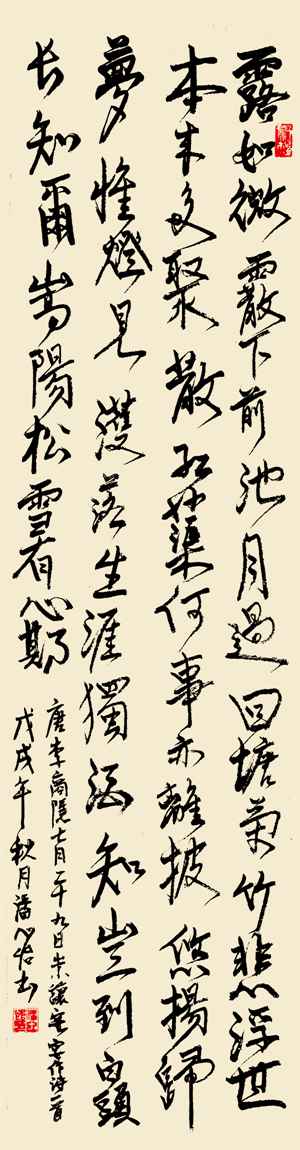 露如微霰下前池月過回塘萬竹悲浮世
本来多聚散紅蕖何事亦離披悠揚歸
夢惟燈見濩落生涯獨酒知豈到白頭
长知爾嵩陽松雪有心期
唐李商隱七月二十九日崇讓宅宴作詩一首
戊戌年秋月潘心书